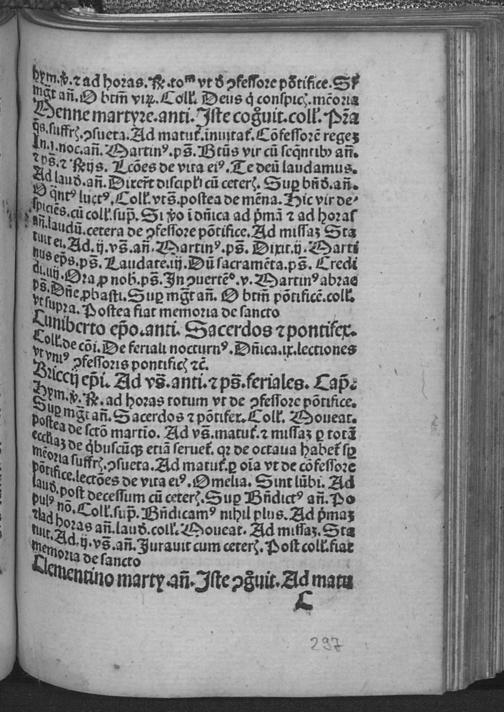 hym̄. v̄. ⁊ ad horas. R̄. totᵐ vt ď ꝯfessore põtifice. Sꝑ
mgt̄ añ. O btm̄ viꝝ. Coll̄. Deus q̇ conspicꝭ. mēoria
Menne martyre. anti. Iste cog̃uit. coll̄. Pr̃a
q̄s. suffrꝭ. ꝯsueta. Ad matut̄. inuitat̄. Cōfessorē regeꝫ
In. j. noc. añ. Martinꝰ. pš. Btũs vir cũ seq̃ntibꝰ añ.
⁊ pš. ⁊ Rn̄js. Lcões de vita eiꝰ. Te deũ laudamus.
Ad laud̄. añ. Dixer̃t discipl̄i cũ ceterꝭ. Suꝑ bñd̄. añ.
O q̃ntꝰ luctꝰ. Coll̄. vtš. postea de mēna. Hic vir de-
spiciēs. cũ coll̄. sup̄. Si v̊o ĩ dñica ad p̃mā ⁊ ad horas
añ. laudũ. cetera de ꝯfessore põtifice. Ad missaꝫ Sta
tuit ei. Ad. ij. vš. añ. Martinꝰ. pš. Dixit. ij. Marti
nus ep̄s. pš. Laudate. iij. Dũ sacramēta. pš. Credi
di. iiij. Ora ꝓ nob̄. pš. In ꝯuertēᵒ. v. Martinꝰ abrae
pš. Dñe ꝓbasti. Suꝑ mg̃t añ. O btm̄ põtificē. coll̄.
vt supra. Postea fiat memoria de sancto
Cuniberto ep̄o. anti. Sacerdos ⁊ pontifex.
Coll̄. de cõi. De feriali nocturnꝰ. Dñica. ix. lectiones
vt vniꝰ ꝯfessoris pontificꝭ ⁊c̄.
Briccij ep̄i. Ad vš. anti. ⁊ pš. feriales. Cap̄.
Hym̄. v̄. R̄. ad horas totum vt de ꝯfessore põtifice.
Suꝑ mg̃t añ. Sacerdos ⁊ põtifex. Coll̄. Moueat.
postea de sctõ martio. Ad vš. matut̄. ⁊ missaꝫ ꝑ totā
ecclīaꝫ de q̇buscũqꝫ etiã seruet̄. qꝛ de octaua habet̄ sꝑ
mēoria suffrꝭ. ꝯsueta. Ad matut̄. ꝑ oīa vt de cõfessore
põtifice. lectões de vita eiꝰ. Omelia. Sint lūbi. Ad
laud̄. post decessum cũ ceterꝭ. Suꝑ Bñdictꝰ añ. Po
pulꝰ nõ. Coll̄. sup̄. Bñdicamꝰ nihil plus. Ad p̃maꝫ
⁊ ad horas añ. laud̄. coll̄. Moueat. Ad missaꝫ. Sta
tuit. Ad. ij. vš. añ. Iurauit cum ceterꝭ. Post coll̄. fiat
memoria de sancto
Clementino martȳ. añ. Iste ꝯg̃uit. Ad matu
C
297